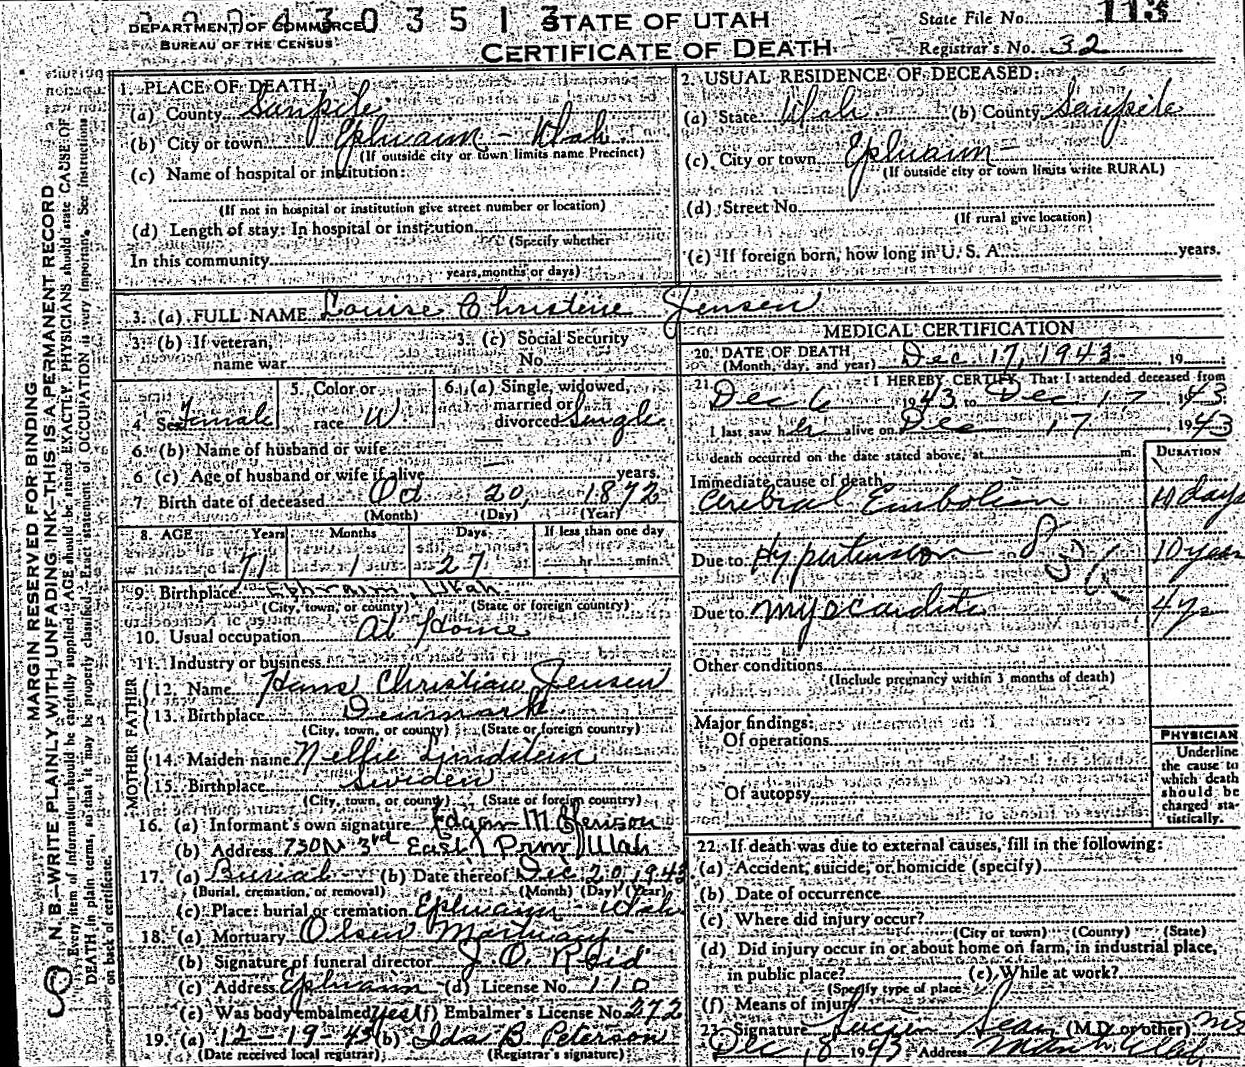 DEPARTMENT OF COMMERCE
BUREAU OF THE CENSUS
STATE OF UTAH
CERTIFICATE OF DEATH
State File No.
Registrar's No. 32
MARGIN RESERVED FOR BINDING
N. B.—WRITE PLAINLY WITH UNFADING INK—THIS IS A PERMANENT RECORD
Every item of information should be carefully supplied. AGE should be stated EXACTLY. PHYSICIANS should state CAUSE OF
DEATH in plain terms, so that it may be properly classified. Exact statement of OCCUPATION is very important. See instructions
on back of certificate.
1. PLACE OF DEATH:
(a) County Sanpete
(b) City or town Ephraim - Utah
(If outside city or town limits name Precinct)
(c) Name of hospital or institution:
(If not in hospital or institution give street number or location)
(d) Length of stay: In hospital or institution
(Specify whether
In this community
years, months or days)
2. USUAL RESIDENCE OF DECEASED:
(a) State Utah (b) County Sanpete
(c) City or town Ephraim -
(If outside city or town limits write RURAL)
(d) Street No.
(If rural give location)
(e) If foreign born, how long in U. S. A. years.
3. (a) FULL NAME Louise Christine Jensen
3. (b) If veteran, name war
3. (c) Social Security No.
4. Sex Female
5. Color or race W
6. (a) Single, widowed, married or divorced Single
6. (b) Name of husband or wife —
6. (c) Age of husband or wife if alive — years
7. Birth date of deceased Oct 20, 1872
(Month) (Day) (Year)
8. AGE Years Months Days If less than one day
71 1 27 hr. min.
9. Birthplace Ephraim, Utah
(City, town, or county) (State or foreign country)
10. Usual occupation At Home
11. Industry or business
FATHER
12. Name Hans Christian Jensen
13. Birthplace Denmark
(City, town, or county) (State or foreign country)
MOTHER
14. Maiden name Nellie
15. Birthplace Sweden
(City, town, or county) (State or foreign country)
16. (a) Informant's own signature Edgar M Jenson
(b) Address 730 N 3rd East Provo Utah
17. (a) Burial (b) Date thereof Dec 20, 1943
(Burial, cremation, or removal) (Month) (Day) (Year)
(c) Place: burial or cremation Ephraim - Utah
18. (a) Mortuary Olsen Mortuary
(b) Signature of funeral director J. O. Reid
(c) Address Ephraim (d) License No. 110
(e) Was body embalmed yes (f) Embalmer's License No. 272
19. (a) 12-19-43 (b) Ida B. Peterson
(Date received local registrar) (Registrar's signature)
MEDICAL CERTIFICATION
20. DATE OF DEATH Dec 17, 1943 19
(Month, day, and year)
21. I HEREBY CERTIFY, That I attended deceased from
Dec 6 1943 to Dec 17 1943
I last saw her alive on Dec 17 1943
death occurred on the date stated above, at m.
DURATION
Immediate cause of death
Cerebral Embolism 10 days
Due to Hypertension 10 years
Due to Myocarditis 4 yrs
Other conditions
(Include pregnancy within 3 months of death)
Major findings:
Of operations
Of autopsy
PHYSICIAN
Underline
the cause to
which death
should be
charged sta-
tistically.
22. If death was due to external causes, fill in the following:
(a) Accident, suicide, or homicide (specify)
(b) Date of occurrence
(c) Where did injury occur?
(City or town) (County) (State)
(d) Did injury occur in or about home on farm, in industrial place,
in public place? (e) While at work?
(Specify type of place)
(f) Means of injury
23. Signature (M.D. or other) MD
Dec 18 1943 Address Manti Utah